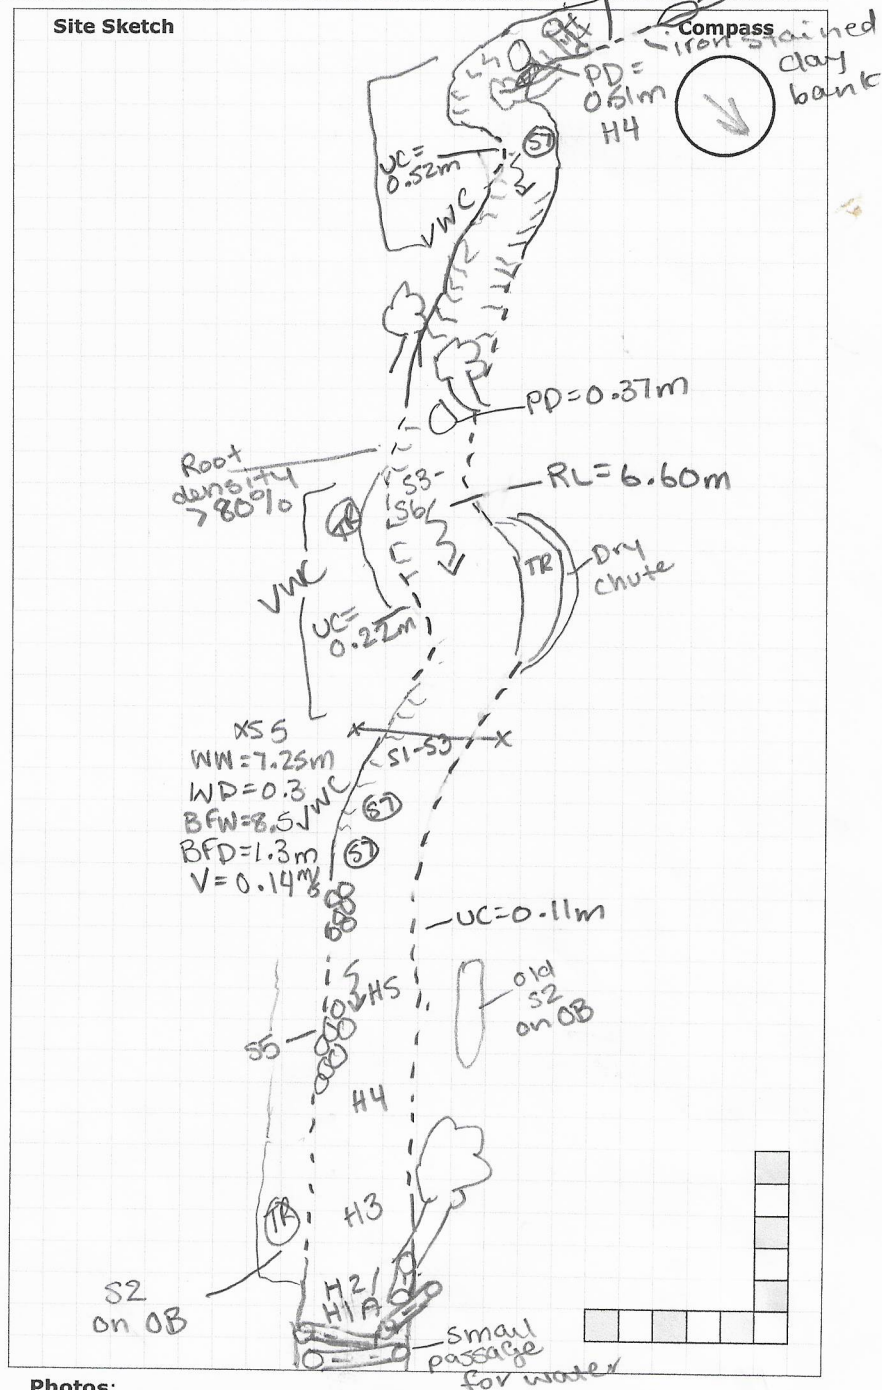 Site Sketch
Compass
iron stained
clay
bank
PD=
0.51m
H4
ST
UC=
0.52m
VWC
PD=0.37m
Root
density
>80%
S3-
S6
RL=6.60m
TR
TR
Dry
chute
VWC
UC=
0.22m
XS5
WW=7.25m
WD=0.3
BFW=8.5
BFD=1.3m
V=0.14m/s
S1-S3
VWC
ST
ST
UC=0.11m
H5
old
S2
on OB
S5
H4
H3
TR
S2
on OB
H2/
H1A
small
passage
for water
Photos: